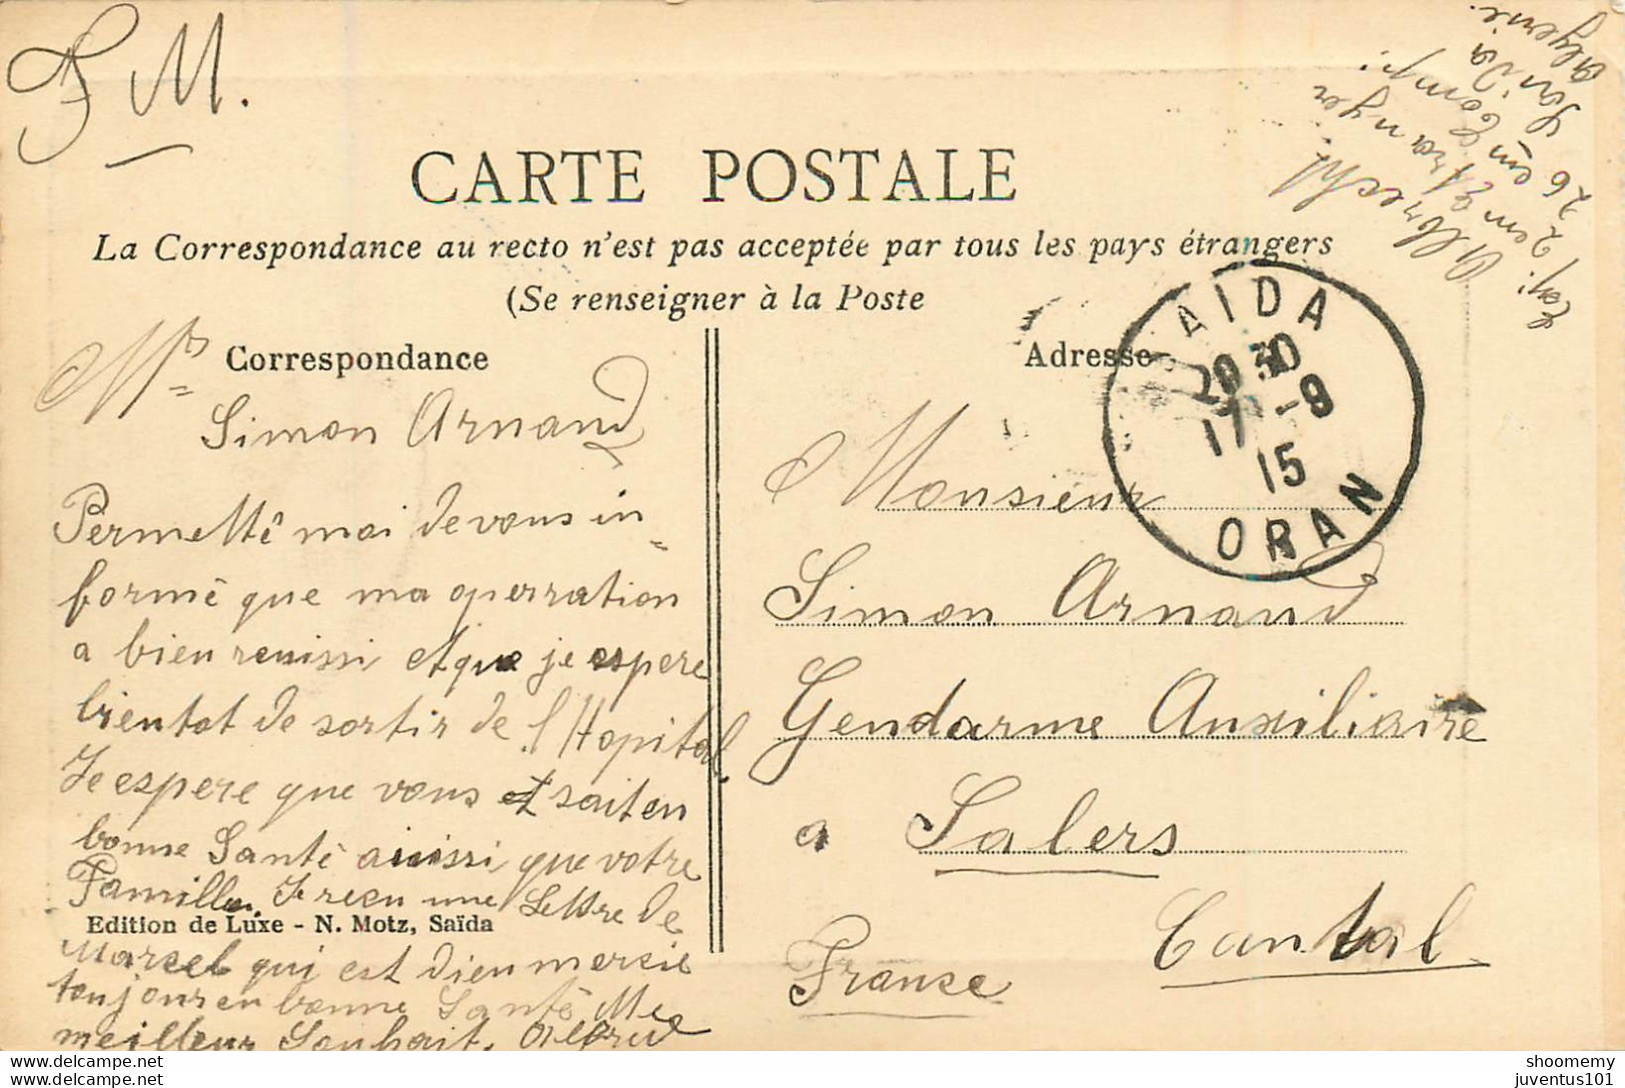 F. M.
Algerie.
Saida
26 em Comp.
2 em Etranger
Leg.
Albrecht
CARTE POSTALE
La Correspondance au recto n'est pas acceptée par tous les pays étrangers
(Se renseigner à la Poste
Correspondance
Mr
Simon Arnand
Permetté moi de vous in=
formé que ma operration
a bien reuissi et que je espere
bientot de sortir de l'Hopital.
Je espere que vous et soit en
bonne Santé auissi que votre
Famille. Je recu une Lettre de
Edition de Luxe - N. Motz, Saïda
Marcel qui est dieu mercie
toujour en bonne Santé
meilleur Souhait.
Adresse
SAIDA
20 30
17 -9
15
ORAN
Monsieur
Simon Arnand
Gendarme Auxiliaire
a Salers
Cantal
France
shoomemy
juventus101